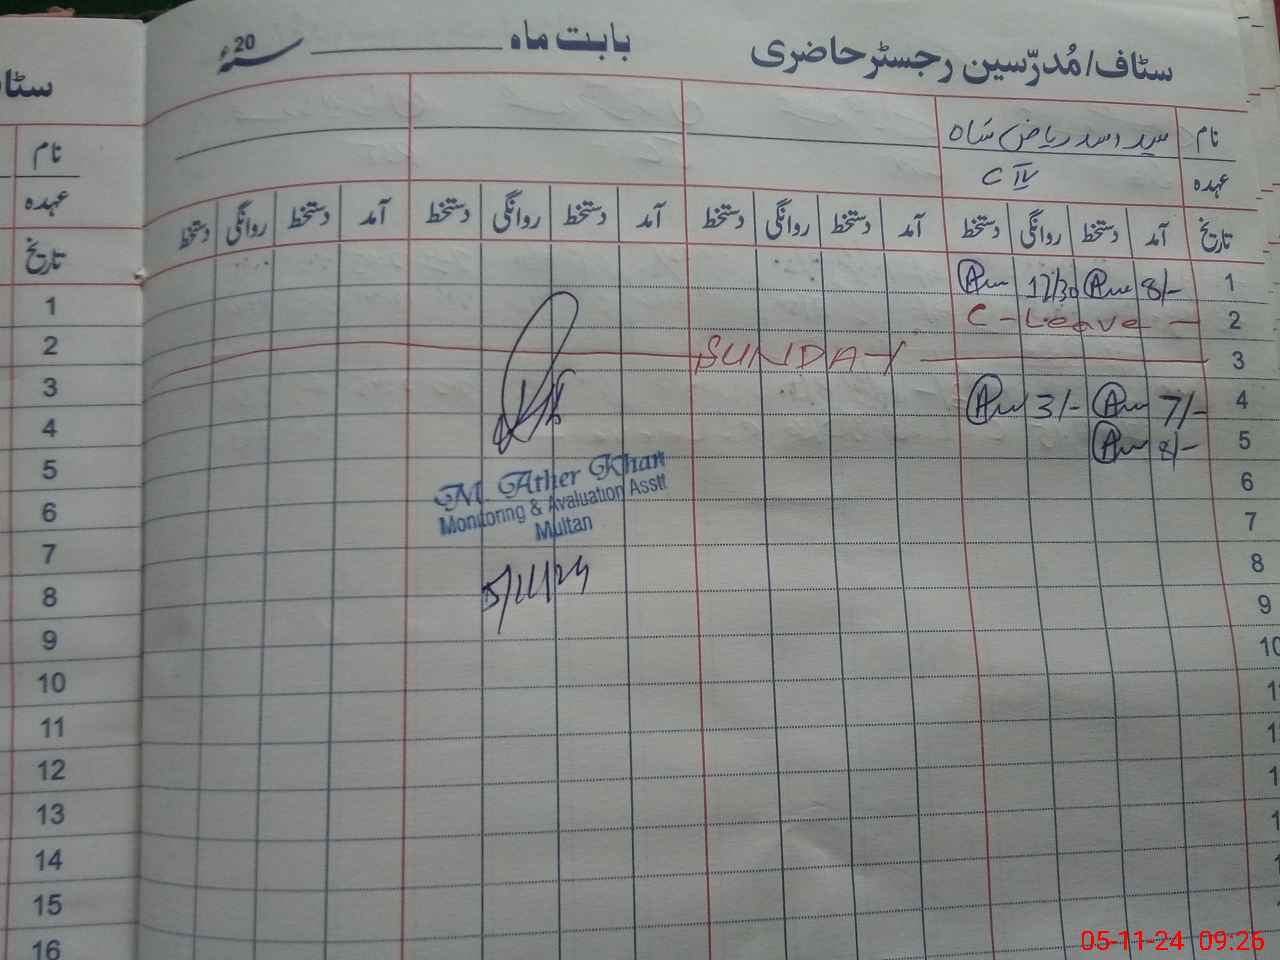 سٹاف/مُدرّسین رجسٹر حاضری بابت ماہ ________ 20 ء
نام سید اسد ریاض شاہ
عہدہ C IV
تاریخ آمد دستخط روانگی دستخط آمد دستخط روانگی دستخط آمد دستخط روانگی دستخط آمد دستخط روانگی دستخط
1 8/- 12/30
2 C - Leave -
3 SUNDAY
4 7/- 3/-
5 8/-
6
7
8
9
10
M. Ather Khan
Monitoring & Avaluation Asstt
Multan
5/11/24
نام
عہدہ
تاریخ
1
2
3
4
5
6
7
8
9
10
11
12
13
14
15
16
05-11-24 09:26